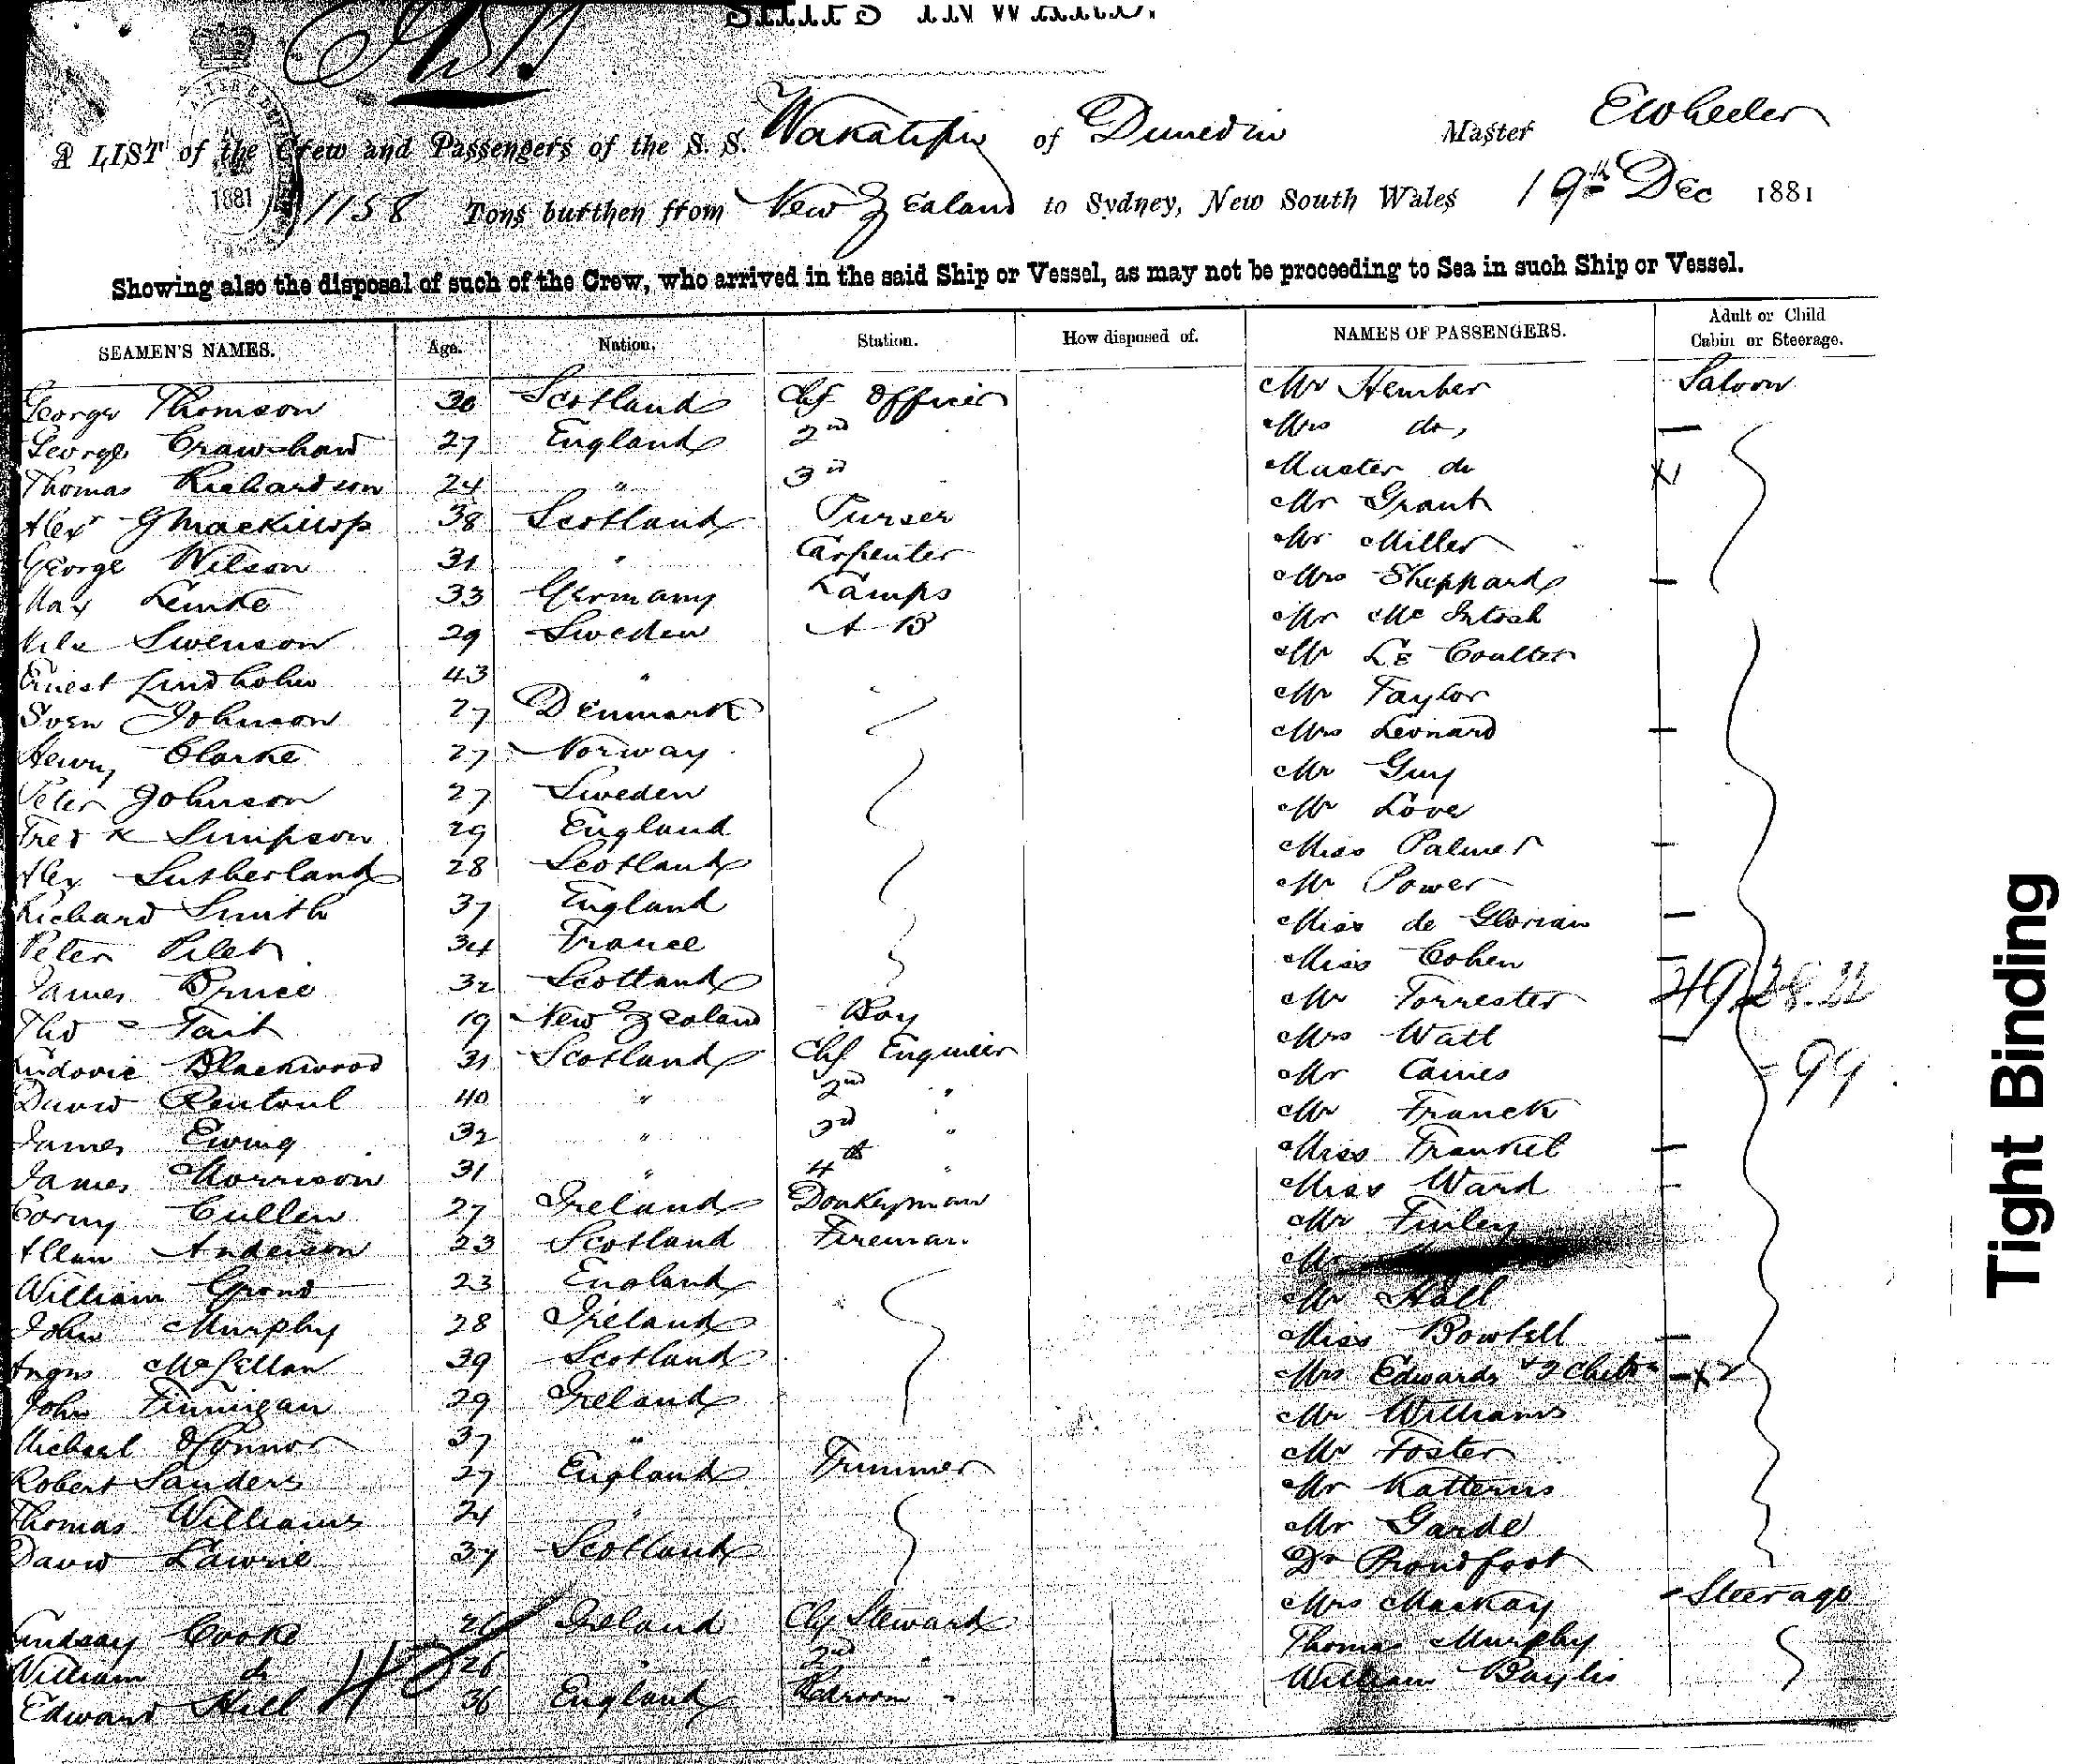 SHIPS INWARD.
A LIST of the Crew and Passengers of the S. S. Wakatipu of Dunedin Master E Wheeler
1881 1158 Tons burthen from New Zealand to Sydney, New South Wales 19th Dec 1881
Showing also the disposal of such of the Crew, who arrived in the said Ship or Vessel, as may not be proceeding to Sea in such Ship or Vessel.
SEAMEN'S NAMES. Age. Nation. Station. How disposed of. NAMES OF PASSENGERS. Adult or Child Cabin or Steerage.
George Thomson 30 Scotland Chf Officer Mr Hember Saloon
George Crawshaw 27 England 2nd Mrs do,
Thomas Richardson 24 " 3rd Master do X
Alexr G Mackillop 38 Scotland Purser Mr Grant
George Wilson 31 " Carpenter Mr Miller
Max Lemke 33 Germany Lamps Mrs Sheppard
Nils Swenson 29 Sweden A B Mr McIntosh
Ernest Lindholm 43 " Mr Le Coulter
Sven Johnson 27 Denmark Mr Taylor
Henry Clarke 27 Norway Mrs Leonard
Peter Johnson 27 Sweden Mr Guy
Fredk Simpson 29 England Mr Love
Alex Sutherland 28 Scotland Miss Palmer
Richard Smith 37 England Mr Power
Peter Pilet 34 France Miss de Glorian
James Bruce 32 Scotland Miss Cohen
Thos Tait 19 New Zealand Boy Mr Forrester 49 28.22
Ludovic Blackwood 31 Scotland Chf Engineer Mrs Watt
David Rentoul 40 " 2nd " Mr Caines = 99
James Ewing 32 " 3rd " Mr Franck
James Morrison 31 " 4th " Miss Frankel
Corny Cullen 27 Ireland Donkeyman Miss Ward
Allan Anderson 23 Scotland Fireman Mr Finley
William 23 England Mr
John Murphy 28 Ireland Mr Hall
Angus McLellan 39 Scotland Miss Bowtell
John Finnigan 29 Ireland Mrs Edwards + 2 Chil X 2
Michael O'Connor 37 " Mr Williams
Robert Sanders 27 England Trimmer Mr Foster
Thomas Williams 24 " Mr Katterns
David Lawrie 37 Scotland Mr Garde
Dr Proudfoot
Lindsay Cooke 26 Ireland Chf Steward Mrs Mackay Steerage
William do 26 " 2nd " Thomas Murphy
Edward Hill 36 England Bedroom " William Baylis
Tight Binding